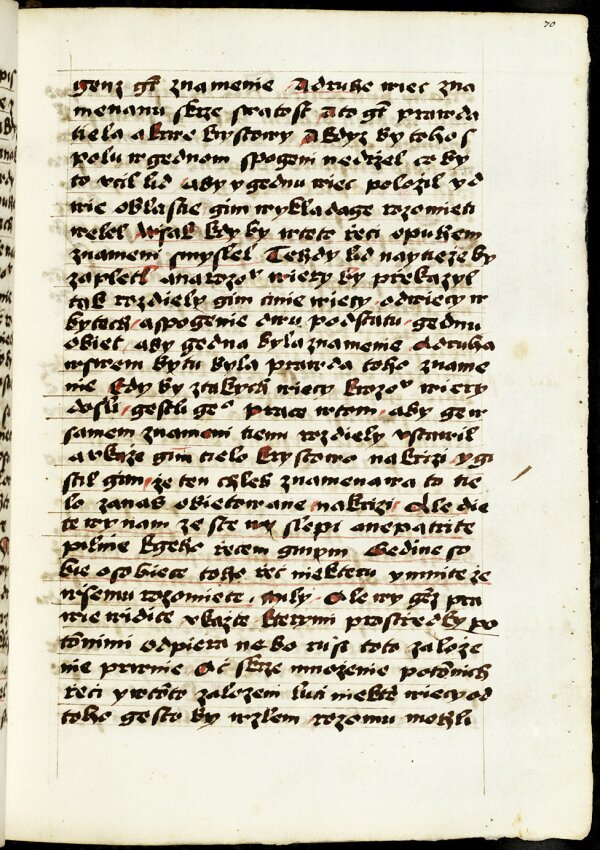 70
genz gt znamenie A druhe wiec zna
menanu skrze swatost A to gt prawda
tiela a krwe krystowy A kdyz by toho s
polu w gednom spogeni nedrzel co by
to vcil lid aby y gednu wiec polozil y d
wie oblastie gim wykladage rozomieti
welel Wsak kdy by w teto řeči o puhem
znameni smyslel Tehdy lid naytieze by
zapletl a narozo wiery by překazyl
tak rozdiely gim čině wiecy od wiecy w
bytech a spogenie dwu podstatu gednu
obiet aby gedna byla znamenie A druha
w swem bytu byla prawda toho zname
nie Kdy by z takych wiecy k rozo wiery
dosli gestli ge prace w tom aby ge w
samem znameni tiemi rozdiely vstawil
a vkaze gim tielo krystowo na krizi y gi
stil gim ze ten chleb znamenawa to tie
lo za nas obietowane na krizi Ale die
te wy nam ze ste wy slepi a nepatrite
pilnie k geho řečem ginym Gedine so
bie osobiece toho řeč niekteru y mnite ze
w semu rozomiete nuly Ale wy gz pra
wie widite vkazte kterymi prostredky po
tomimi odpiera nebo rusi toto zaloze
nie prwnie Ač skrze mnozenie potomnich
řečí y w tomto zalozeni luči niekte wiecy od
toho gesto by w zlem rozomu mohli